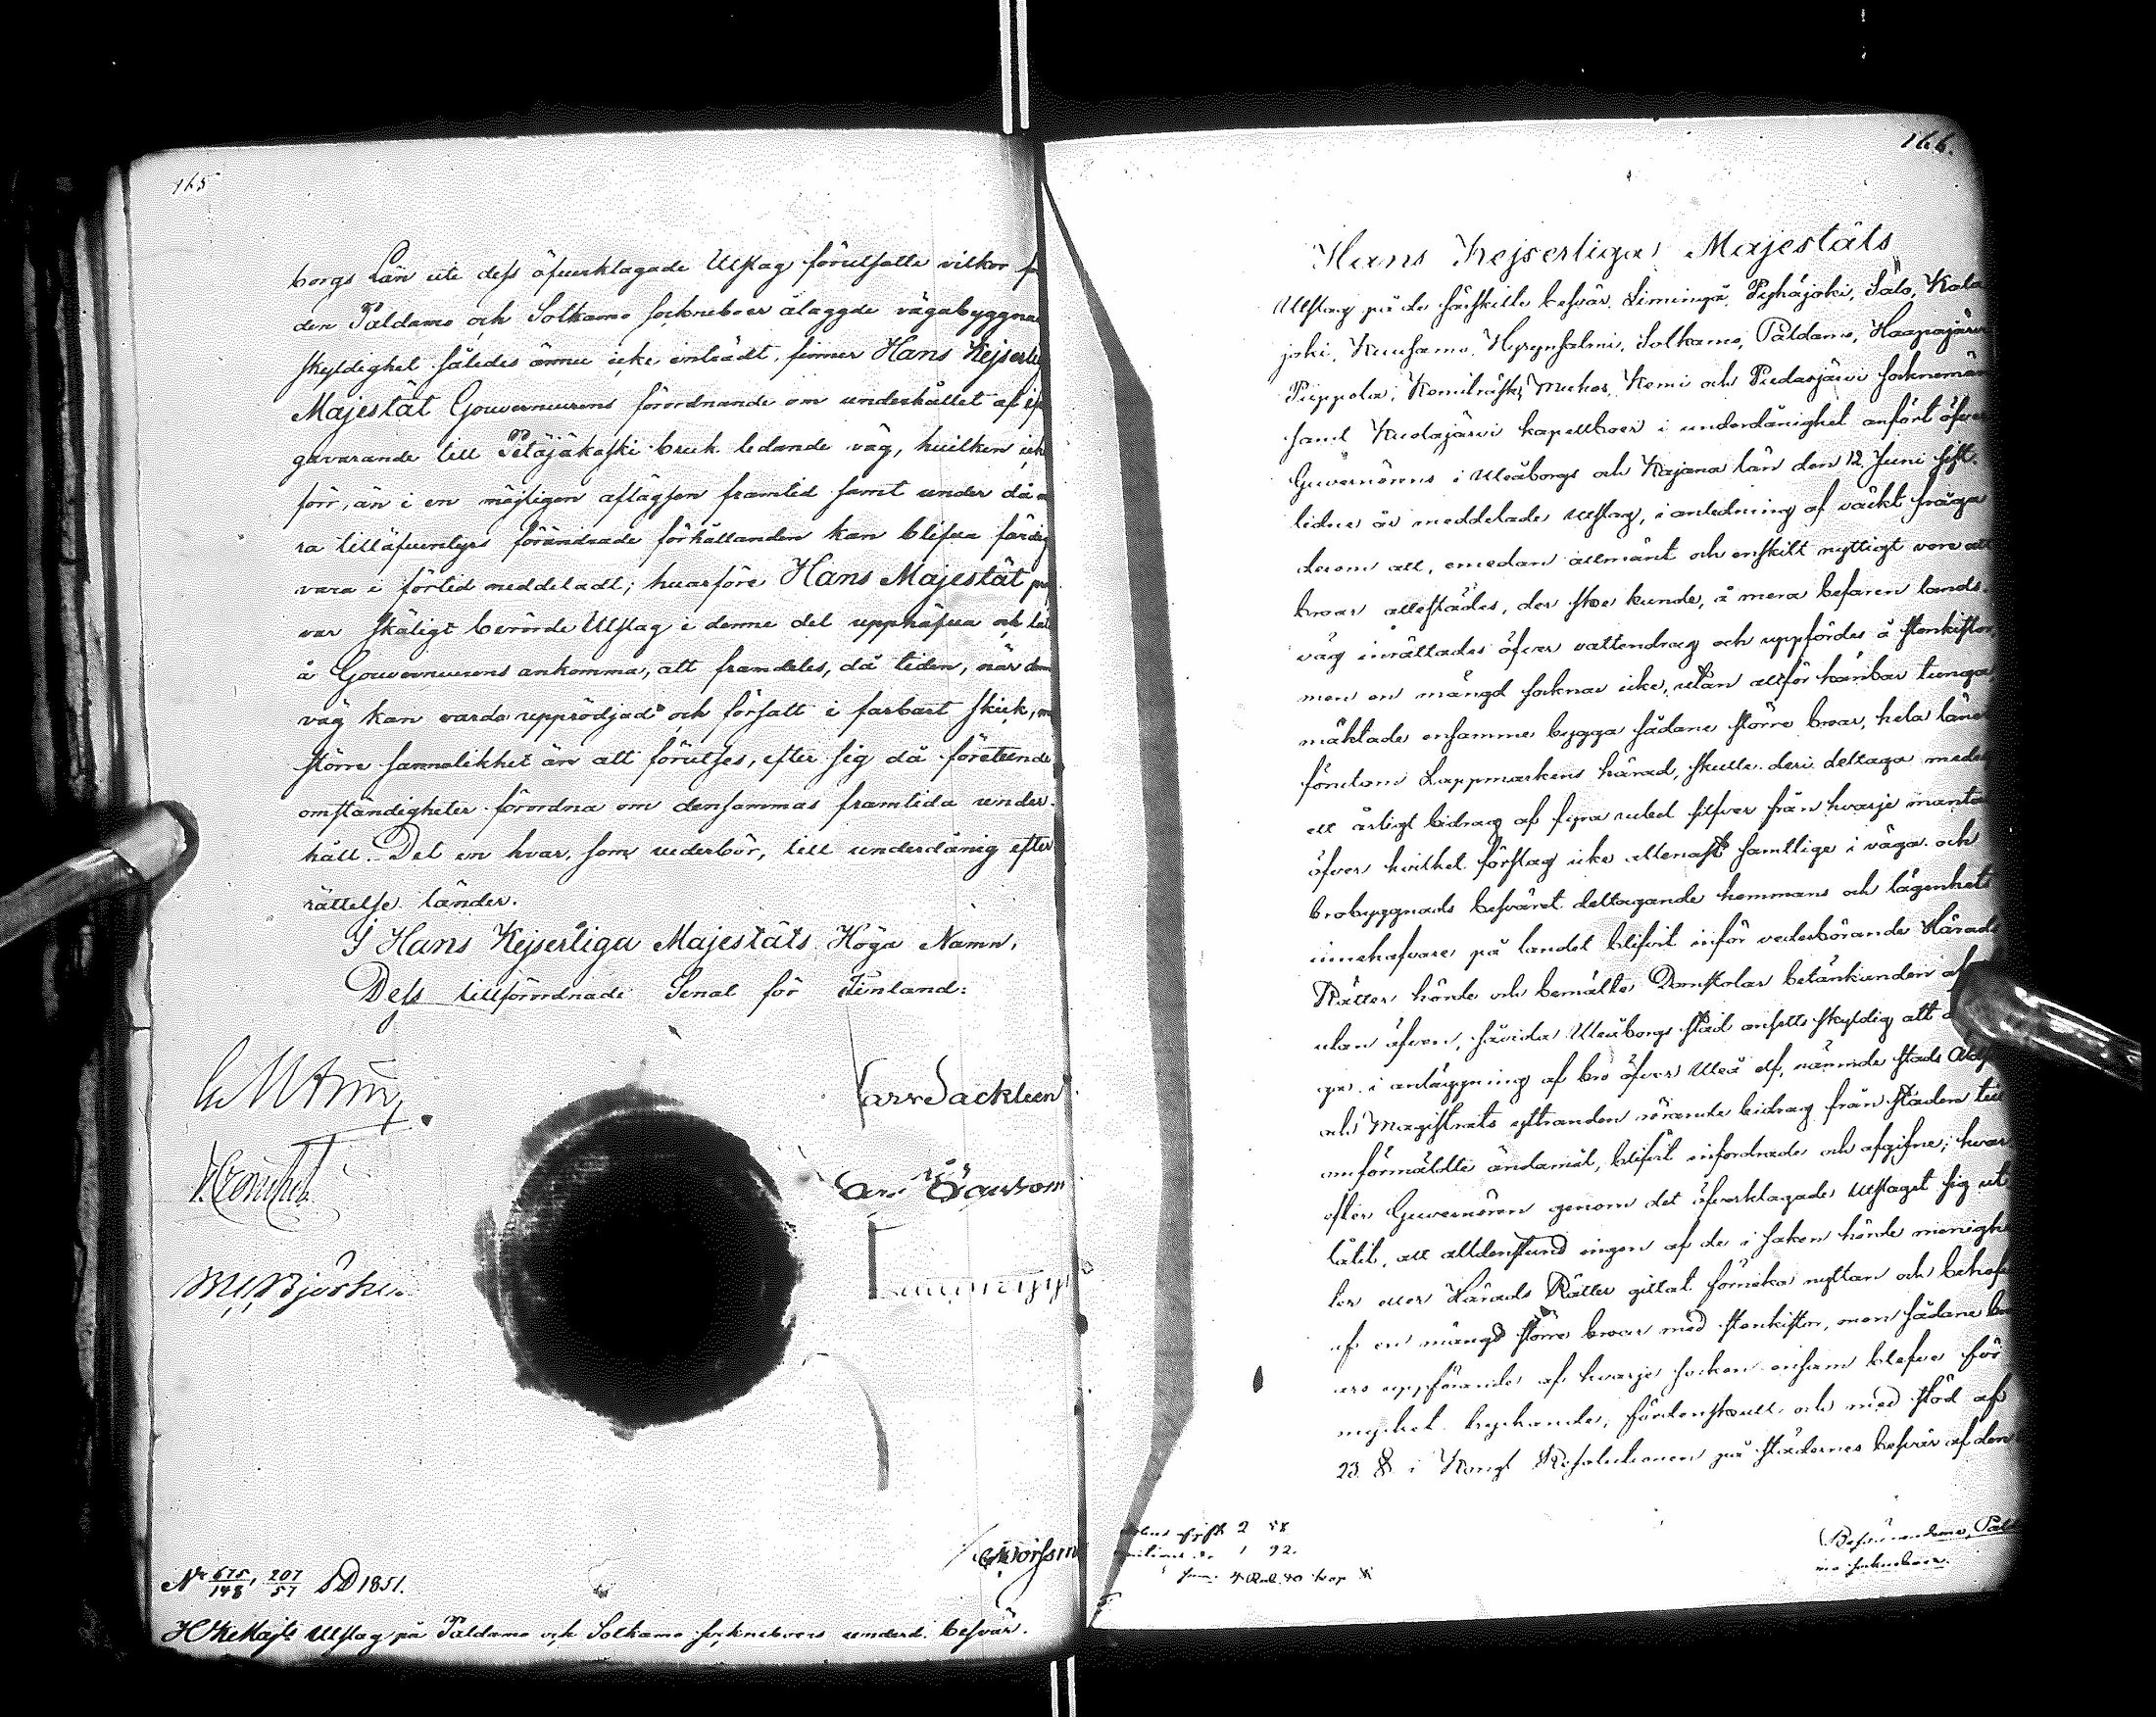 165
borgs Län ute dess öfverklagade Utslag förutsatte vilkor
den Paldamo och Sotkamo sockneboer ålaggde vägabyggna
skyldighet således ännu icke inträdt, finner Hans Kejserli
Majestät Gouverneurens förordnande om underhållet af
gavarande till Petäjäkoski bruk ledande väg, hvilken ick
förr, än i en möjligen aflägsen framtid samt under då
ra tilläfventyrs förändrade förhållanden kan blifva färdig
vara i förtid meddeladt; hvarföre Hans Majestät
var skäligt berörde Utslag i denne del upphäfva och
å Gouverneurens ankomma, att framdeles, då tiden, när
väg kan varda upprödjad och försatt i farbart skick,
större sannolikhet än att förutses, efter sig då företeende
omständigheter förordna om densammas framtida under-
håll. Det en hvar, som vederbör, till underdånig efter
rättelse länder.
I Hans Kejserliga Majestäts Höga Namn,
Dess tillförordnade Senat för Finland:
Björk
No 675/148, 207/57 SD 1851.
Utslag på Paldamo och Sotkamo sockneboers underd. besvär.
166.
Hans Kejserliga Majestäts
Utslag på de särskilte besvär, Limingå, Pyhäjoki, Salo, Kala
joki, Kuusamo, Hyrynsalmi, Sotkamo, Paldamo, Haapajärvi
Pieppola, Kemiträsk, Muhos, Kemi och Pudasjärvi sockneman
samt Kuolajärvi kapellboer i underdånighet anfört öfver
Guvernörens i Uleåborgs och Kajana län den 12 Juni sist-
lidne år meddelade utslag, i anledning af väckt fråga
derom att, emedan allmänt och enskilt nyttigt vore att
broar allestädes, der ske kunde, å mera befaren lands-
väg inrättades öfver vattendrag och uppfördes å stenkistor,
men en mängd socknar icke, utan allför känbar tunga,
mäktade ensamme bygga sådane större broar, hela länet
förutom Lappmarkens härad, skulle deri deltaga medelst
ett årligt bidrag af fyra rubel silfver från hvarje mantal
öfver hvilket förslag icke allenast samtlige i väga- och
brobyggnads besväret deltagande hemmans och lägenhets
innehafvare på landet blifvit inför vederbörande Härads
Rätter hörde och bemälte Domstolar betänkanden
utan äfven, såvida Uleåborgs stad ansetts skyldig att
ga i anläggning af bro öfver Uleå elf, nämnde stads
och Magistrats yttranden rörande bidrag från staden till
omförmäldte ändamål, blifvit infordrade och afgifne; hvar
efter Guvernören genom det öfverklagade utslaget sig ut
låtit, att alldenstund ingen af de i saken hörde menighe
ter eller Härads Rätter gittat förneka nyttan och behofvet
af en mängd större broar med stenkistor, men sådane bro
ars uppförande af hvarje socken ensam blefve för
mycket tryckande, fördenskull och med stöd af
23 § i Kongl Resolutionen på städernes besvär af den
Besvärandena, Pald
mo sockneboer.